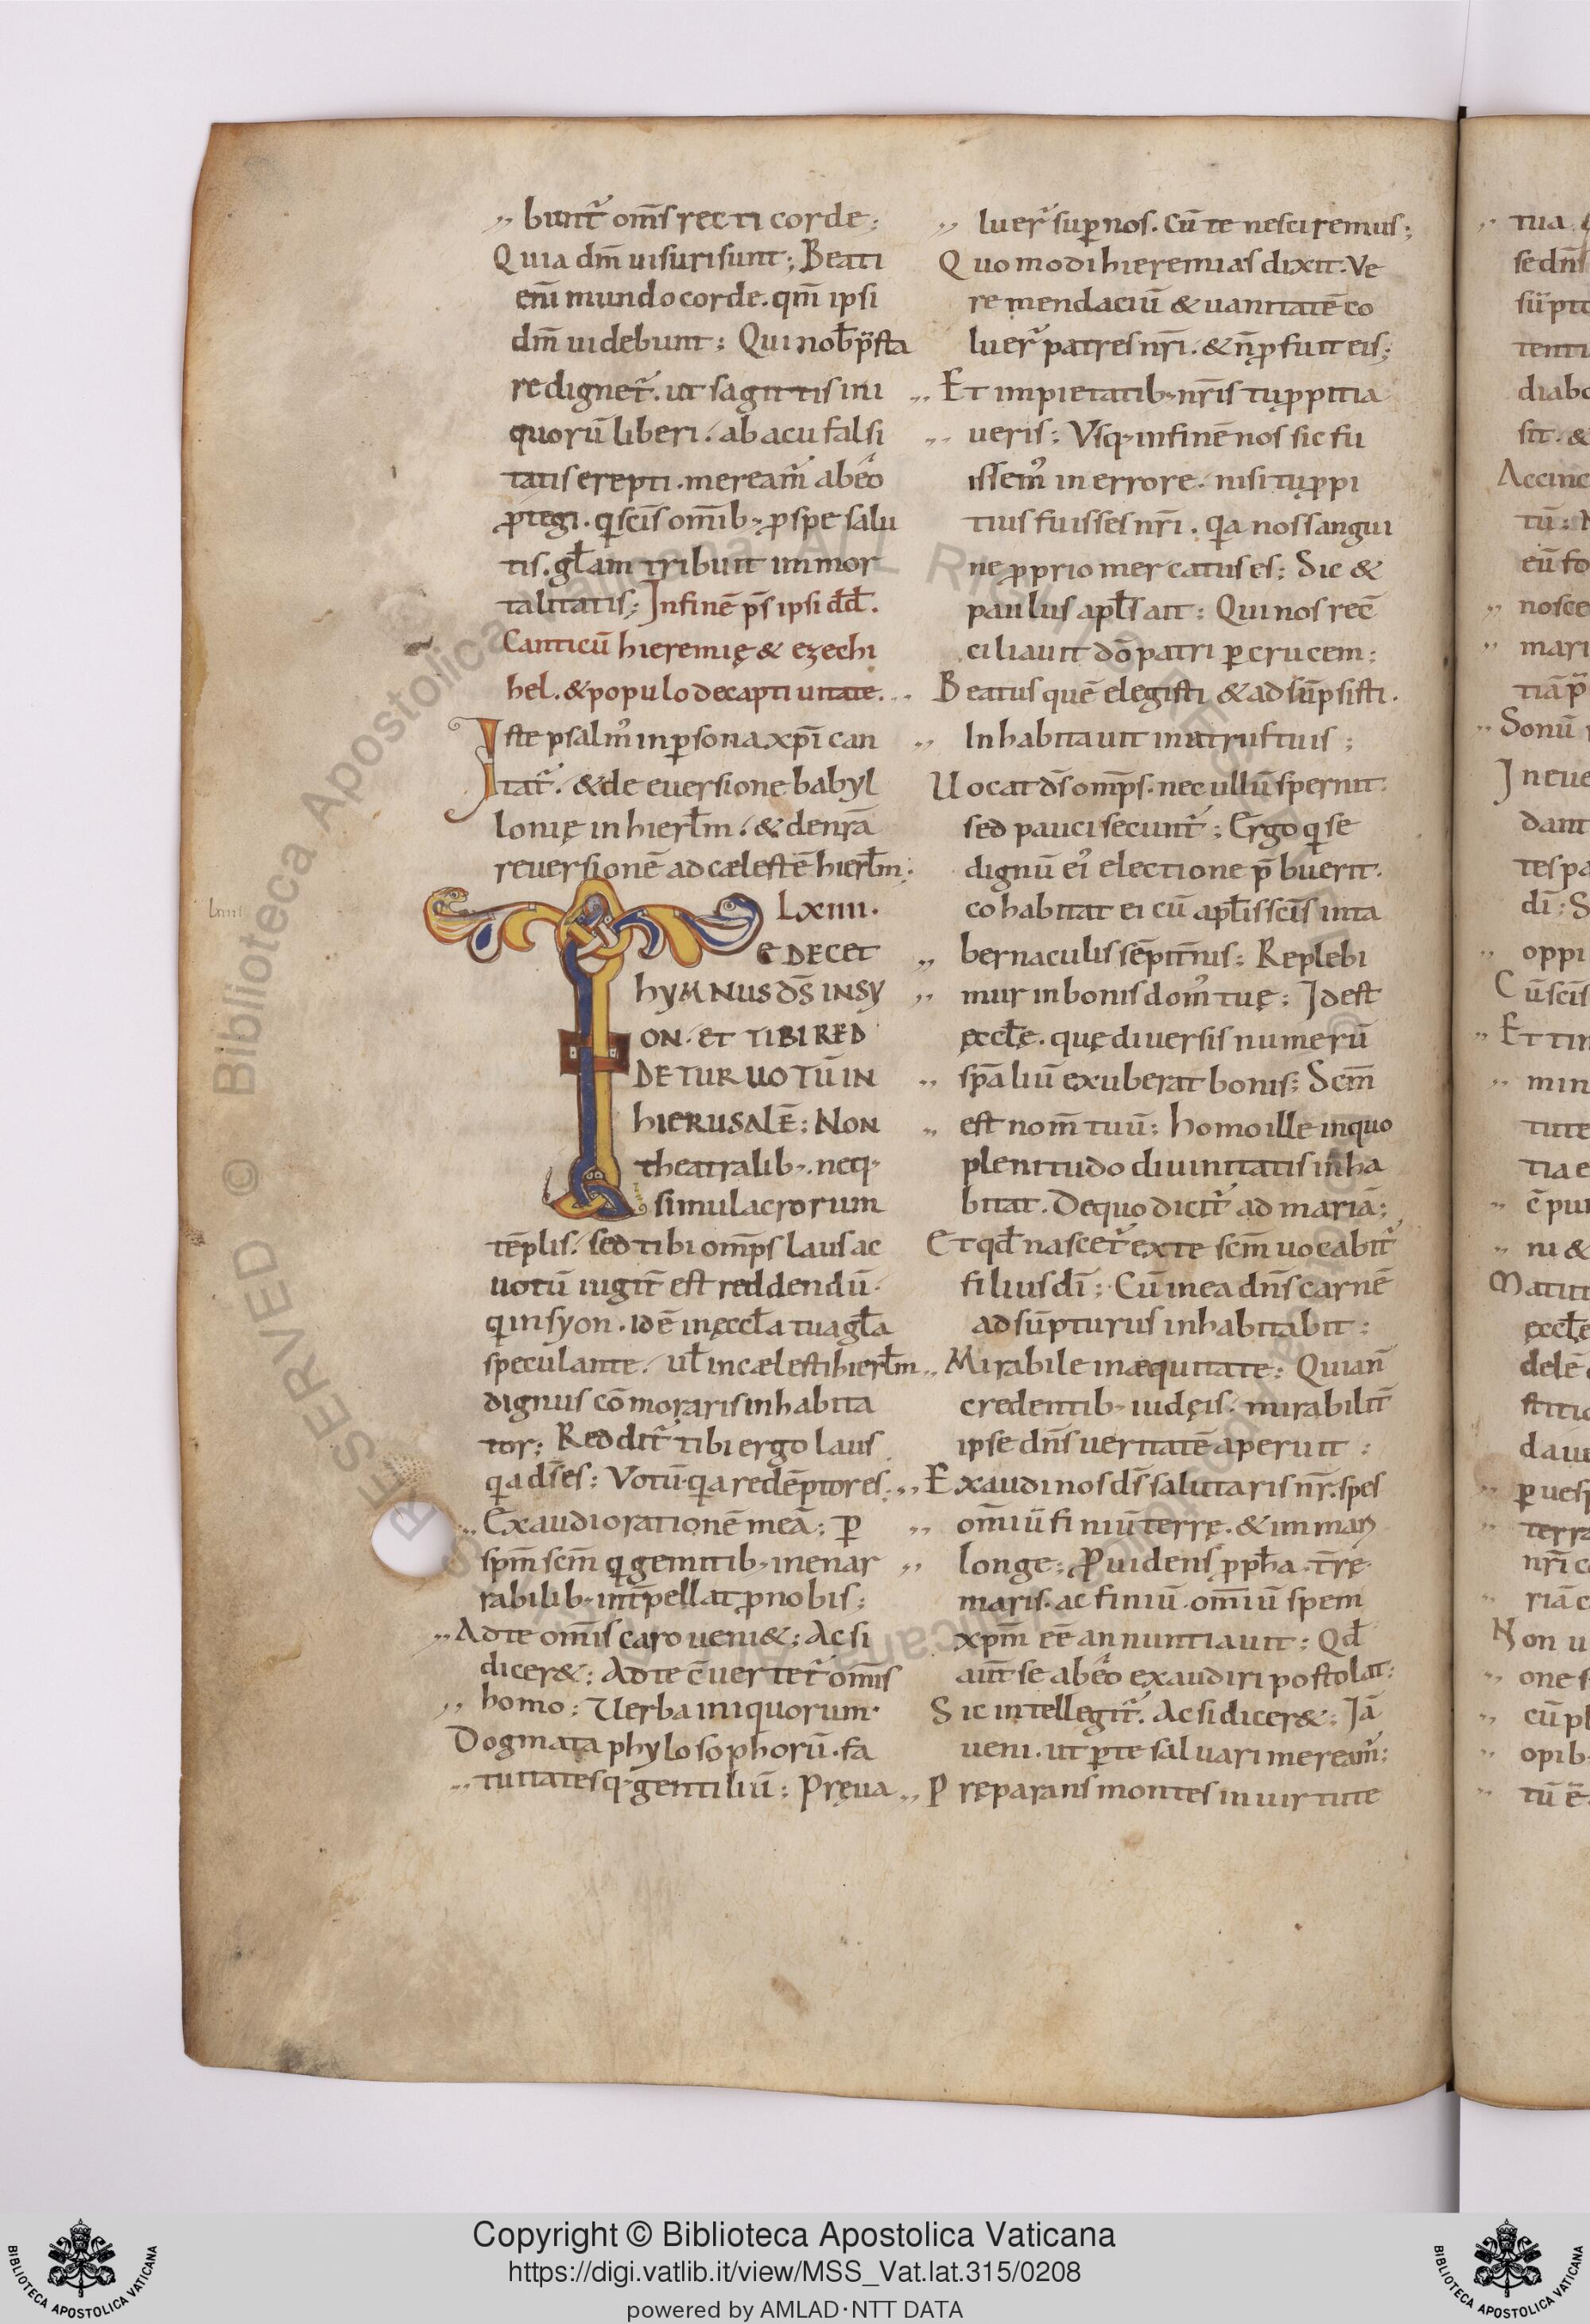 bunt᷑ om̅s recti corde;
Quia dm̅ uisuri sunt; Beati
eni̅ mundo corde. qm̅ ipsi
dm̅ uidebunt; Qui nob̅ p̅sta
re dignet᷑. ut sagittis ini
quorū liberi. ab acu falsi
tatis erepti. meream᷑ ab eo
ꝓtegi. qi scīs omīb; ꝓ spe salu
tis. gl̅am tribuit immor
talitatis; In finē ps̅ ipsi dd̅.
Canticū hieremię & ezechi
hel. & populo de captiuitate.
Iste psalm᷒ in ꝑsona xp̅i can
tat᷑. & de euersione babyl
lonię in hierl̅m. & de nr̅a
reuersionē ad cælestē hierl̅m;
Lxiiii.
TE DECET
HYMNUS DS̅ IN SY
ON. ET TIBI RED
DETUR UOTŪ IN
HIERUSALĒ; NON
theatralib;. neq;
simulacrorum
tēplis. sed tibi omp̅s laus ac
uotū iugit̅ est reddendū.
qi in syon. id ē in ęccl̅a tua gl̅a
speculante. ul̅ in cælesti hierl̅m
dignus cōmoraris inhabita
tor; Reddit᷑ tibi ergo laus
qa ds̅ es; Votū. qa redēptor es.
Exaudi orationē meā; ꝑ
spm̅ scm̅ qi gemitib; inenar
rabilib; int̅pellat ꝓ nobis;
Ad te omīs caro ueni&; Ac si
dicer&; Ad te c̅uertet᷑ omīs
homo; Uerba iniquorum.
Dogmata phylosophorū. fa
tuitatesq; gentiliū; Pręua
luer᷑ sup nos. Cū te nesciremus;
Quomodi hieremias dixit. Ve
re mendaciū & uanitatē co
luer᷑ patres nr̅i. & n̅ ꝓfuit eis;
Et impietatib; nr̅is tu ꝓpitia
ueris; Vsq; in finē nos sic fu
issem᷒ in errore. nisi tu ꝓpi
tius fuisses nr̅i. qa nos sangui
ne ꝓprio mercatus es; Sic &
paulus apl̅s ait; Qui nos rec̅
ciliauit dō patri ꝑ crucem;
Beatus quē elegisti & adsūpsisti.
Inhabitauit in atriis tuis;
Uocat ds̅ omp̅s. nec ullū spernit.
sed pauci secunt᷑; Ergo qi se
dignū ei᷒ electione p̅buerit.
cohabitat ei cū apl̅is scīs in ta
bernaculis sēpit̅nis; Replebi
mur in bonis dom᷒ tuę; Id est
ęccl̅ę. quę diuersis numerū
sp̅aliū exuberat bonis; Scm̅
est nom̅ tuū; Homo ille in quo
plenitudo diuinitatis inha
bitat. De quo dicit᷑ ad mariā;
Et qd̅ nascet᷑ ex te scm̅ uocabit᷑
filius di̅; Cū in ea dn̅s carnē
adsūpturus inhabitabit;
Mirabile in æquitate; Quia n̅
credentib; iudęis. mirabilit̅
ipse dn̅s ueritatē aperuit;
Exaudi nos ds̅ salutaris nr̅. spes
om̅iū finiū terrę. & in mari
longe; Puidens ꝓph̅a. t̅rę.
maris. ac finiū. om̅iū spem
xpm̅ eē annuntiauit; Qd̅
aut̅ se ab eo exaudiri postolat;
Sic intellegit᷑. Ac si dicer&; Iā
ueni. ut ꝑ te saluari meream᷑;
Pręparans montes in uirtute
Copyright © Biblioteca Apostolica Vaticana
https://digi.vatlib.it/view/MSS_Vat.lat.315/0208
powered by AMLAD·NTT DATA
BIBLIOTECA APOSTOLICA VATICANA
BIBLIOTECA APOSTOLICA VATICANA